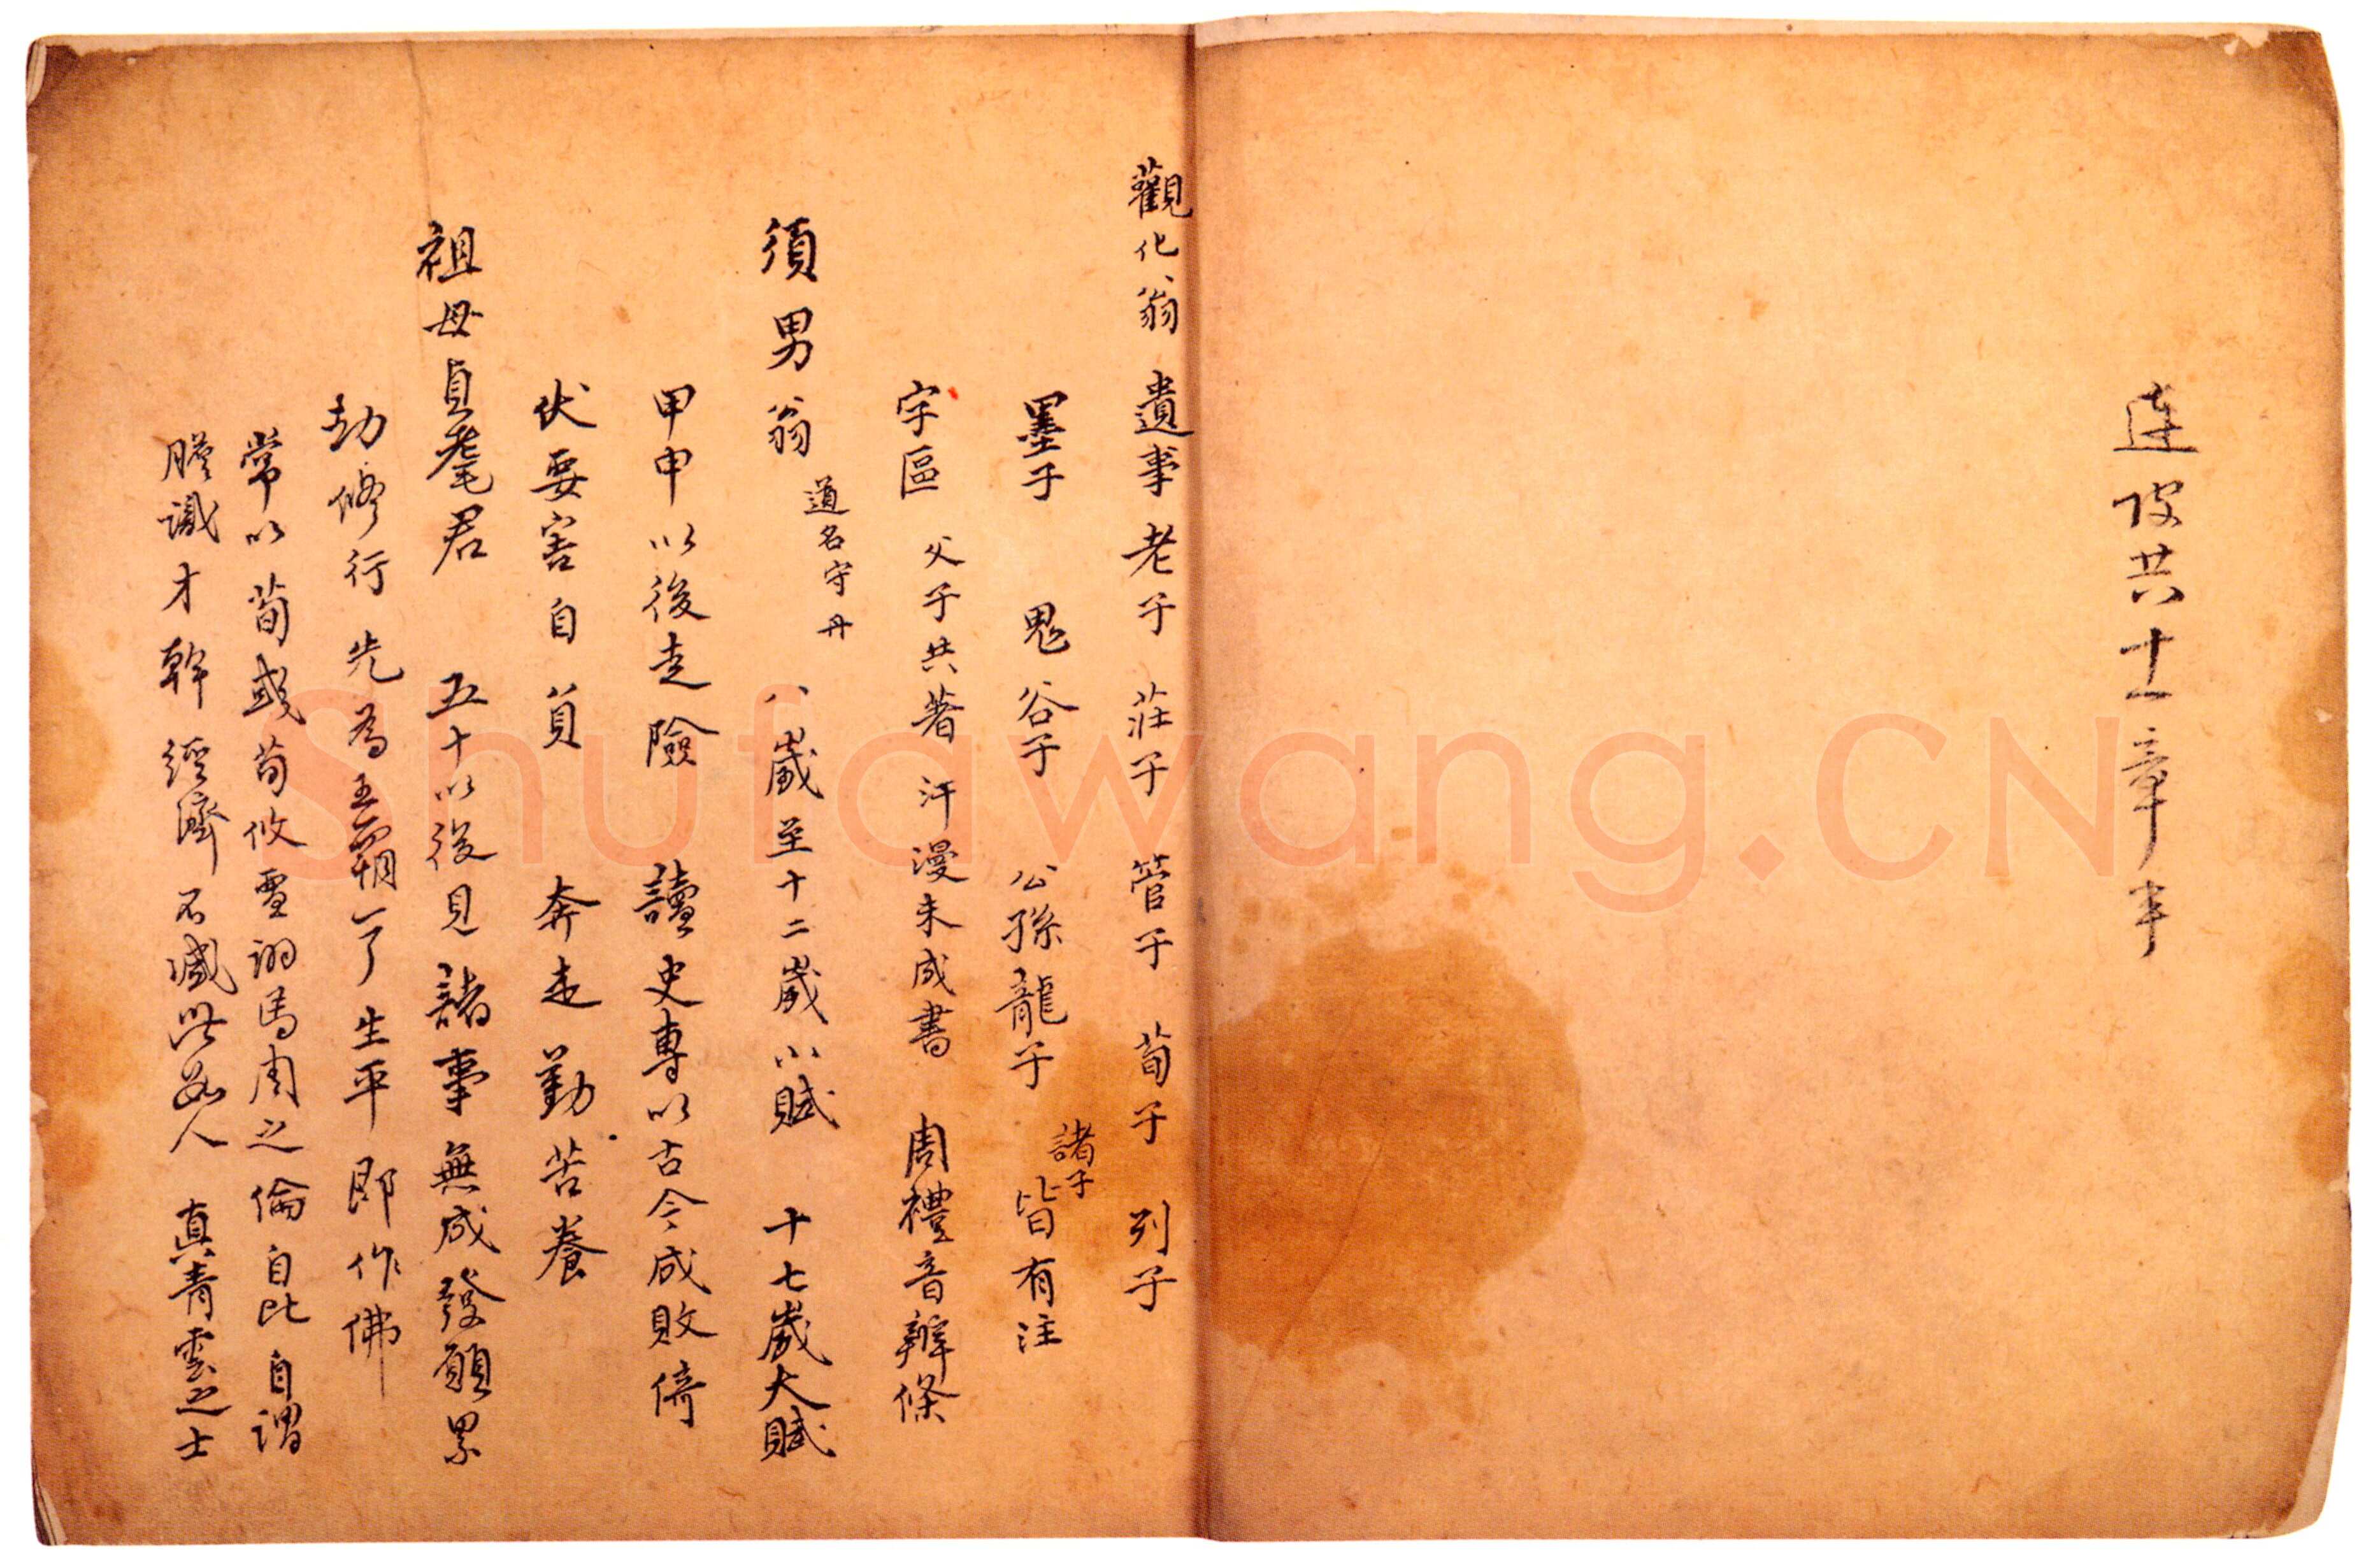 連皮共十一章半
觀化翁 遺事 老子 莊子 管子 荀子 列子
墨子 鬼谷子 公孫龍子 諸子皆有注
字區 父子共著 汗漫未成書 周禮音辨條
須男翁 道名守丹 八歲至十二歲小賦 十七歲大賦
甲申以後走險 讀史專以古今成敗倚
伏要害自負 奔走勤苦養
祖母貞髦君 五十以後見諸事無成發願累
劫修行先為王霸了生平即作佛
常以荀彧荀攸賈詡馬周之倫自比自謂
膽識才幹經濟不減此數人 真青雲之士
Shufawang.CN